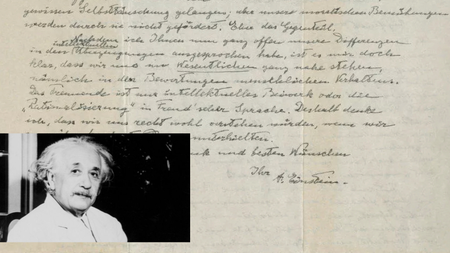 gewisser Selbsttäuschung gelangen; aber unsere moralischen Bemühungen
werden durch sie nicht gefördert. Eher das Gegenteil.
Nachdem ich Ihnen nun ganz offen unsere Differenzen
intellektuellen
in den Überzeugungen ausgesprochen habe, ist es mir doch
klar, dass wir uns im Wesentlichen ganz nahe stehen,
nämlich in den Bewertungen menschlichen Verhaltens.
Das Trennende ist nur intellektuelles Beiwerk oder die
"Rationalisierung" in Freud'scher Sprache. Deshalb denke
ich, dass wir uns recht wohl verstehen würden, wenn wir
unterhielten.
und besten Wünschen
Ihr A. Einstein.